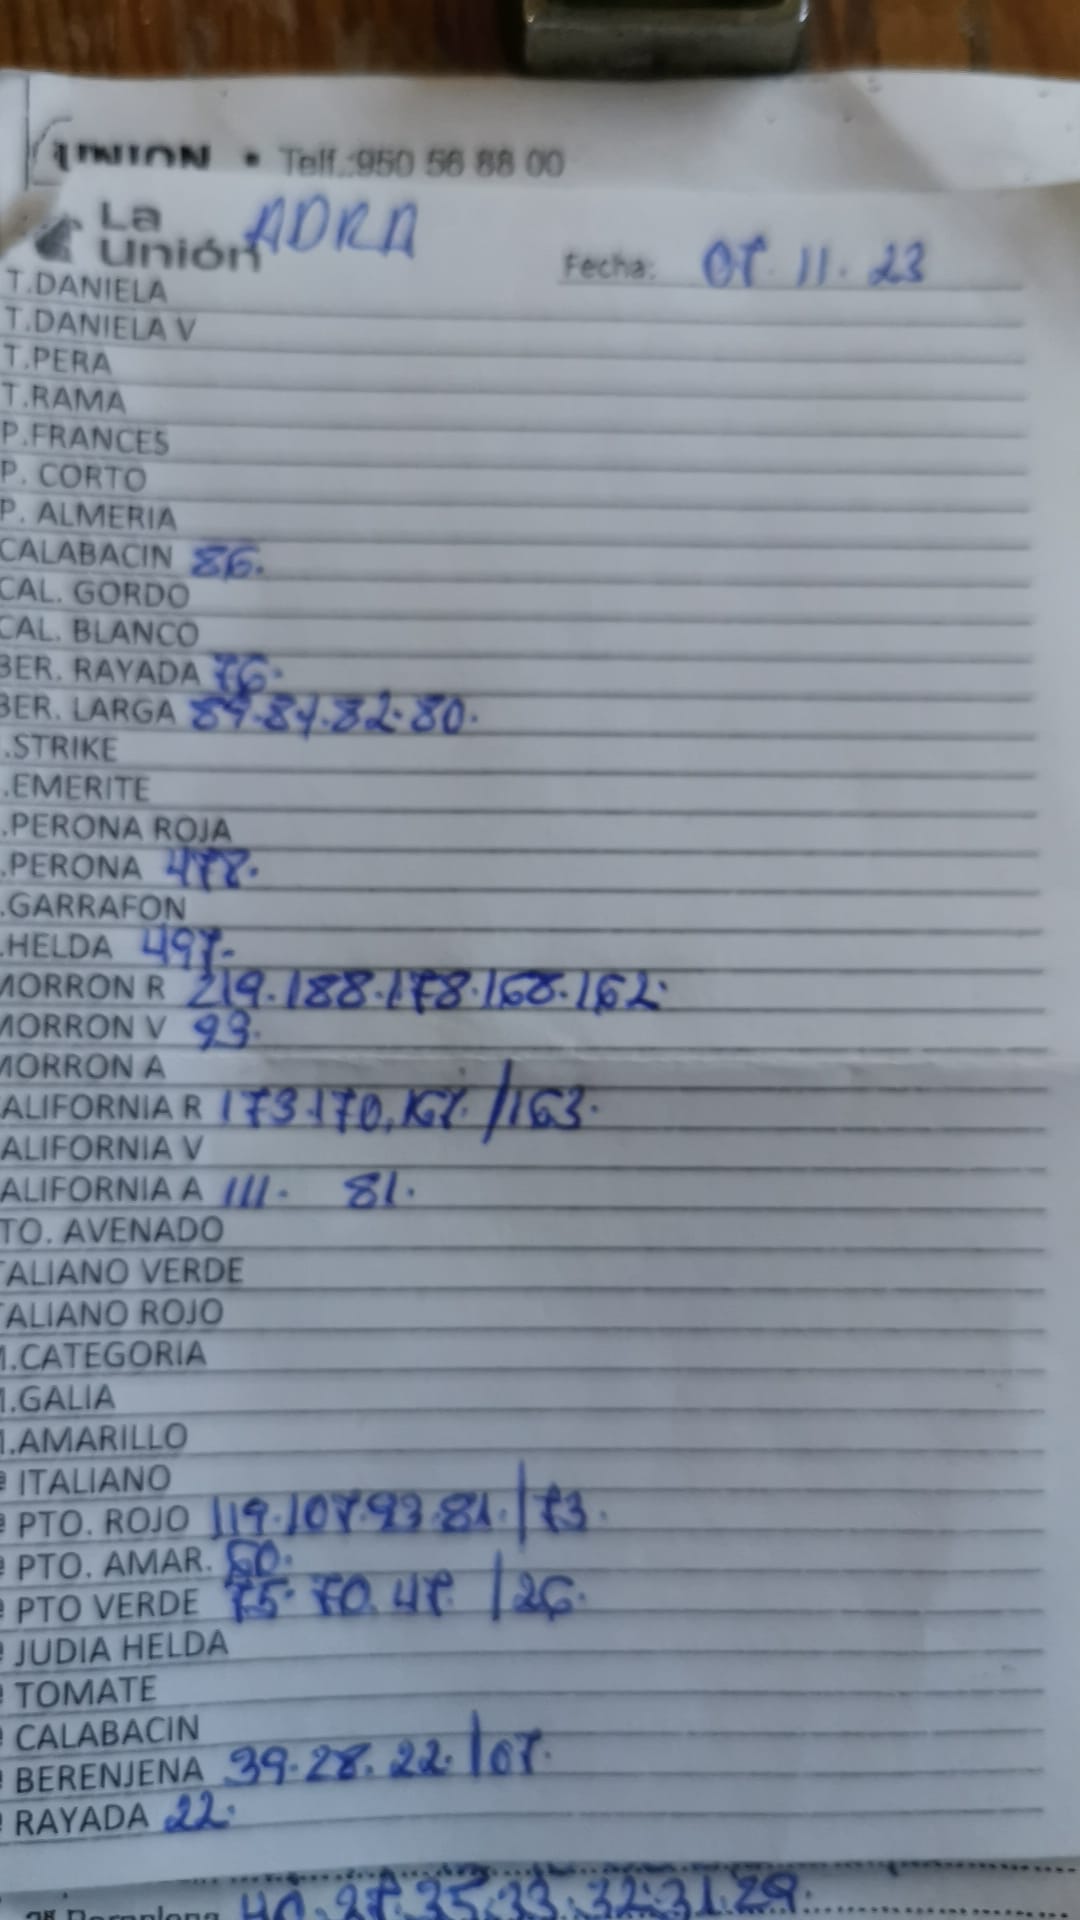 UNION • Telf.:950 56 88 00
La Unión ADRA Fecha: 07.11.23
T.DANIELA
T.DANIELA V
T.PERA
T.RAMA
P.FRANCES
P. CORTO
P. ALMERIA
CALABACIN 86.
CAL. GORDO
CAL. BLANCO
BER. RAYADA 76.
BER. LARGA 89.84.82.80.
.STRIKE
.EMERITE
.PERONA ROJA
.PERONA 478.
.GARRAFON
.HELDA 497-
MORRON R 219.188.178.168.162.
MORRON V 93.
MORRON A
ALIFORNIA R 173.170, /163.
ALIFORNIA V
ALIFORNIA A 111. 81.
TO. AVENADO
TALIANO VERDE
TALIANO ROJO
M.CATEGORIA
M.GALIA
M.AMARILLO
ª ITALIANO
ª PTO. ROJO 119.107.93.81./73.
ª PTO. AMAR. 60.
ª PTO VERDE 75. 70. 47. /26.
ª JUDIA HELDA
ª TOMATE
ª CALABACIN
ª BERENJENA 39.28.22./07.
ª RAYADA 22.
40.37.35.33.32.31.29.